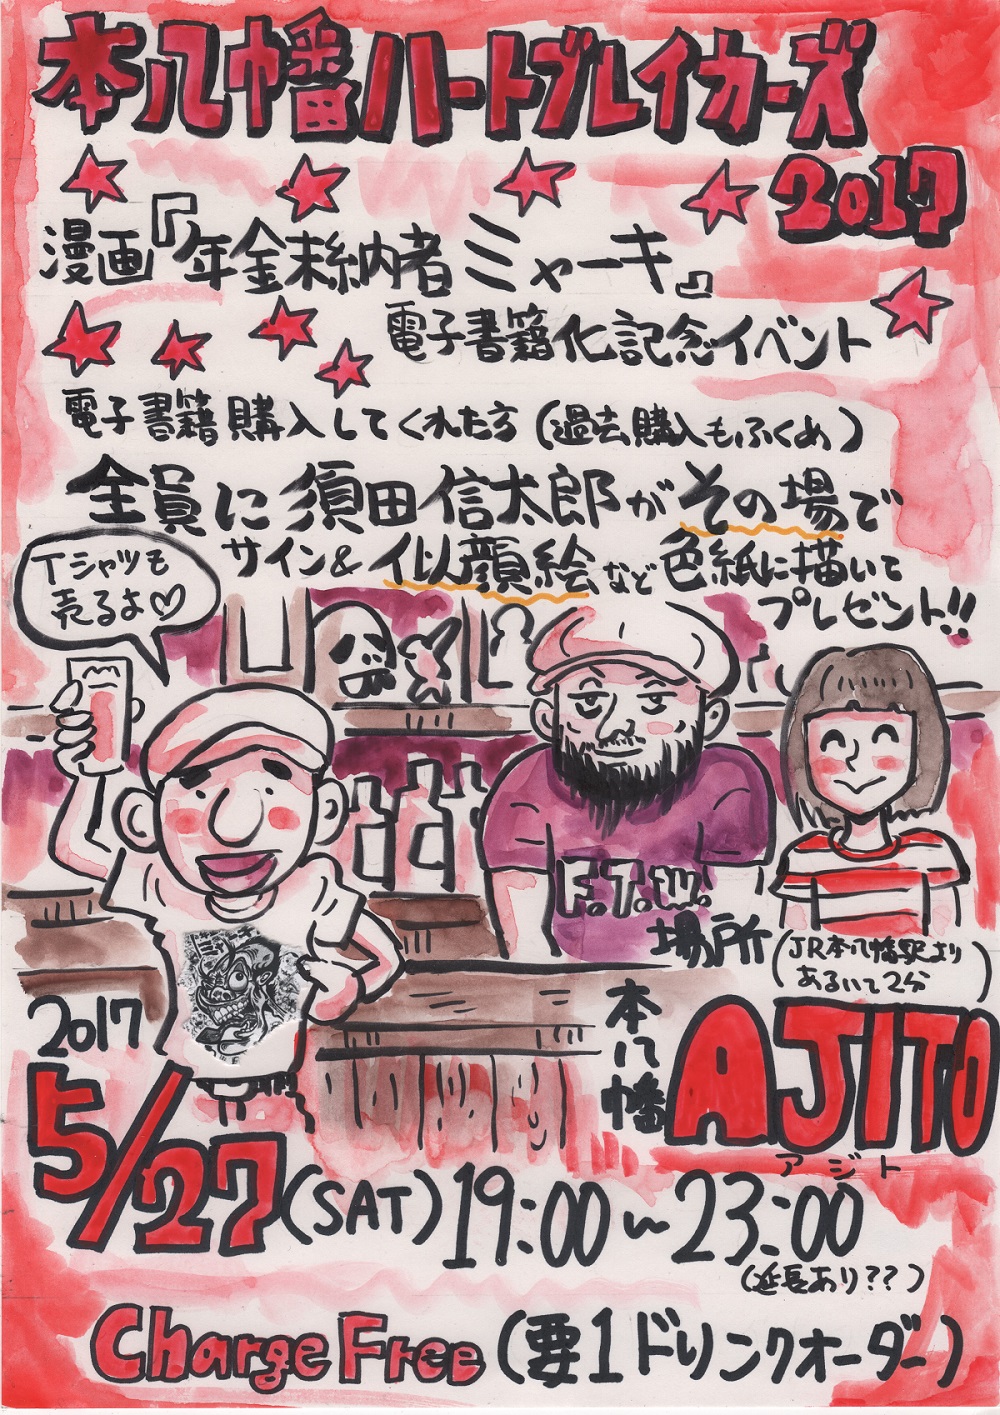 本八幡ハートブレイカーズ
2017
漫画『年金未納者ミャーキ』
電子書籍化記念イベント
電子書籍購入してくれた方(過去購入もふくめ)
全員に須田信太郎がその場で
サイン&似顔絵など色紙に描いて
プレゼント!!
Tシャツも
売るよ♡
F.T.W.
場所
(JR本八幡駅より
あるいて2分)
本八幡
AJITO
アジト
2017
5/27(SAT)19:00〜23:00
(延長あり??)
Charge Free(要1ドリンクオーダー)